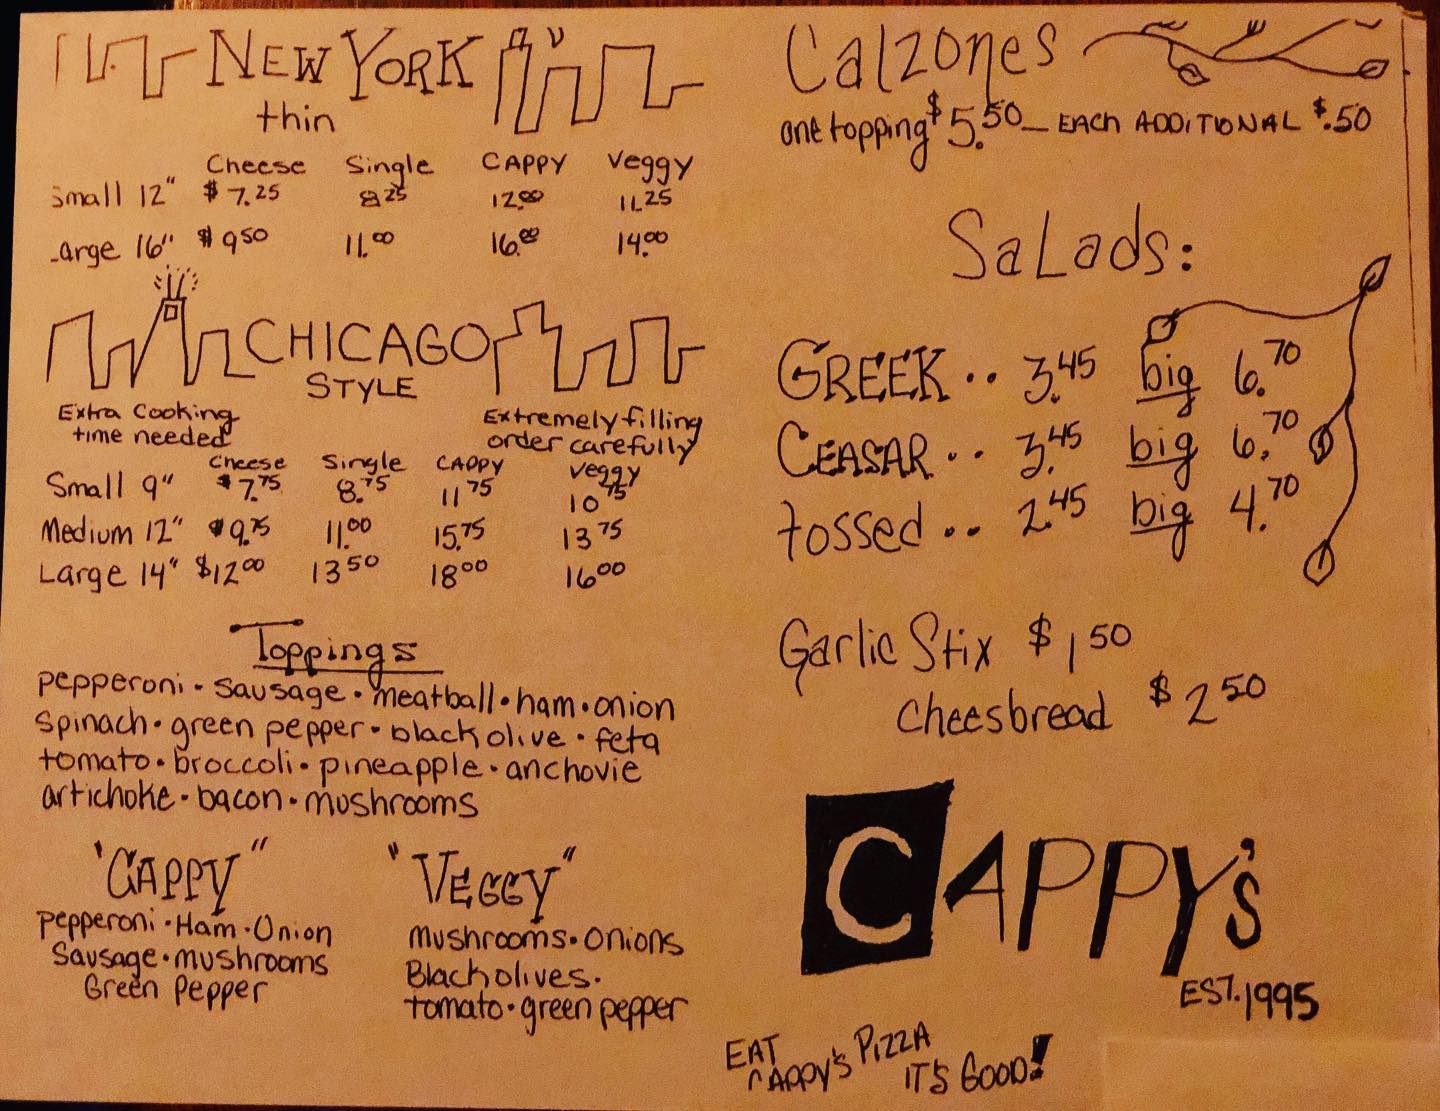 NEW YORK
thin
Cheese Single CAPPY Veggy
Small 12" $7.25 8.25 12.00 11.25
Large 16" $9.50 11.00 16.00 14.00
CHICAGO
STYLE
Extra Cooking
time needed
Extremely filling
order carefully
Cheese Single CAPPY Veggy
Small 9" $7.75 8.75 11 75 10 75
Medium 12" $9.75 11.00 15.75 13 75
Large 14" $12 00 13 50 18 00 16 00
Toppings
pepperoni • sausage • meatball • ham • onion
spinach • green pepper • black olive • feta
tomato • broccoli • pineapple • anchovie
artichoke • bacon • mushrooms
"CAPPY"
pepperoni • Ham • Onion
Sausage • mushrooms
Green Pepper
"VEGGY"
mushrooms • onions
Black olives •
tomato • green pepper
Calzones
one topping $5.50 — EACH ADDITIONAL $.50
SaLads:
GREEK .. 3.45 big 6.70
CEASAR .. 3.45 big 6.70
tossed .. 2.45 big 4.70
Garlic Stix $1 50
cheesbread $2 50
CAPPY's
EST. 1995
EAT
CAPPY's PIZZA
IT'S GOOD!